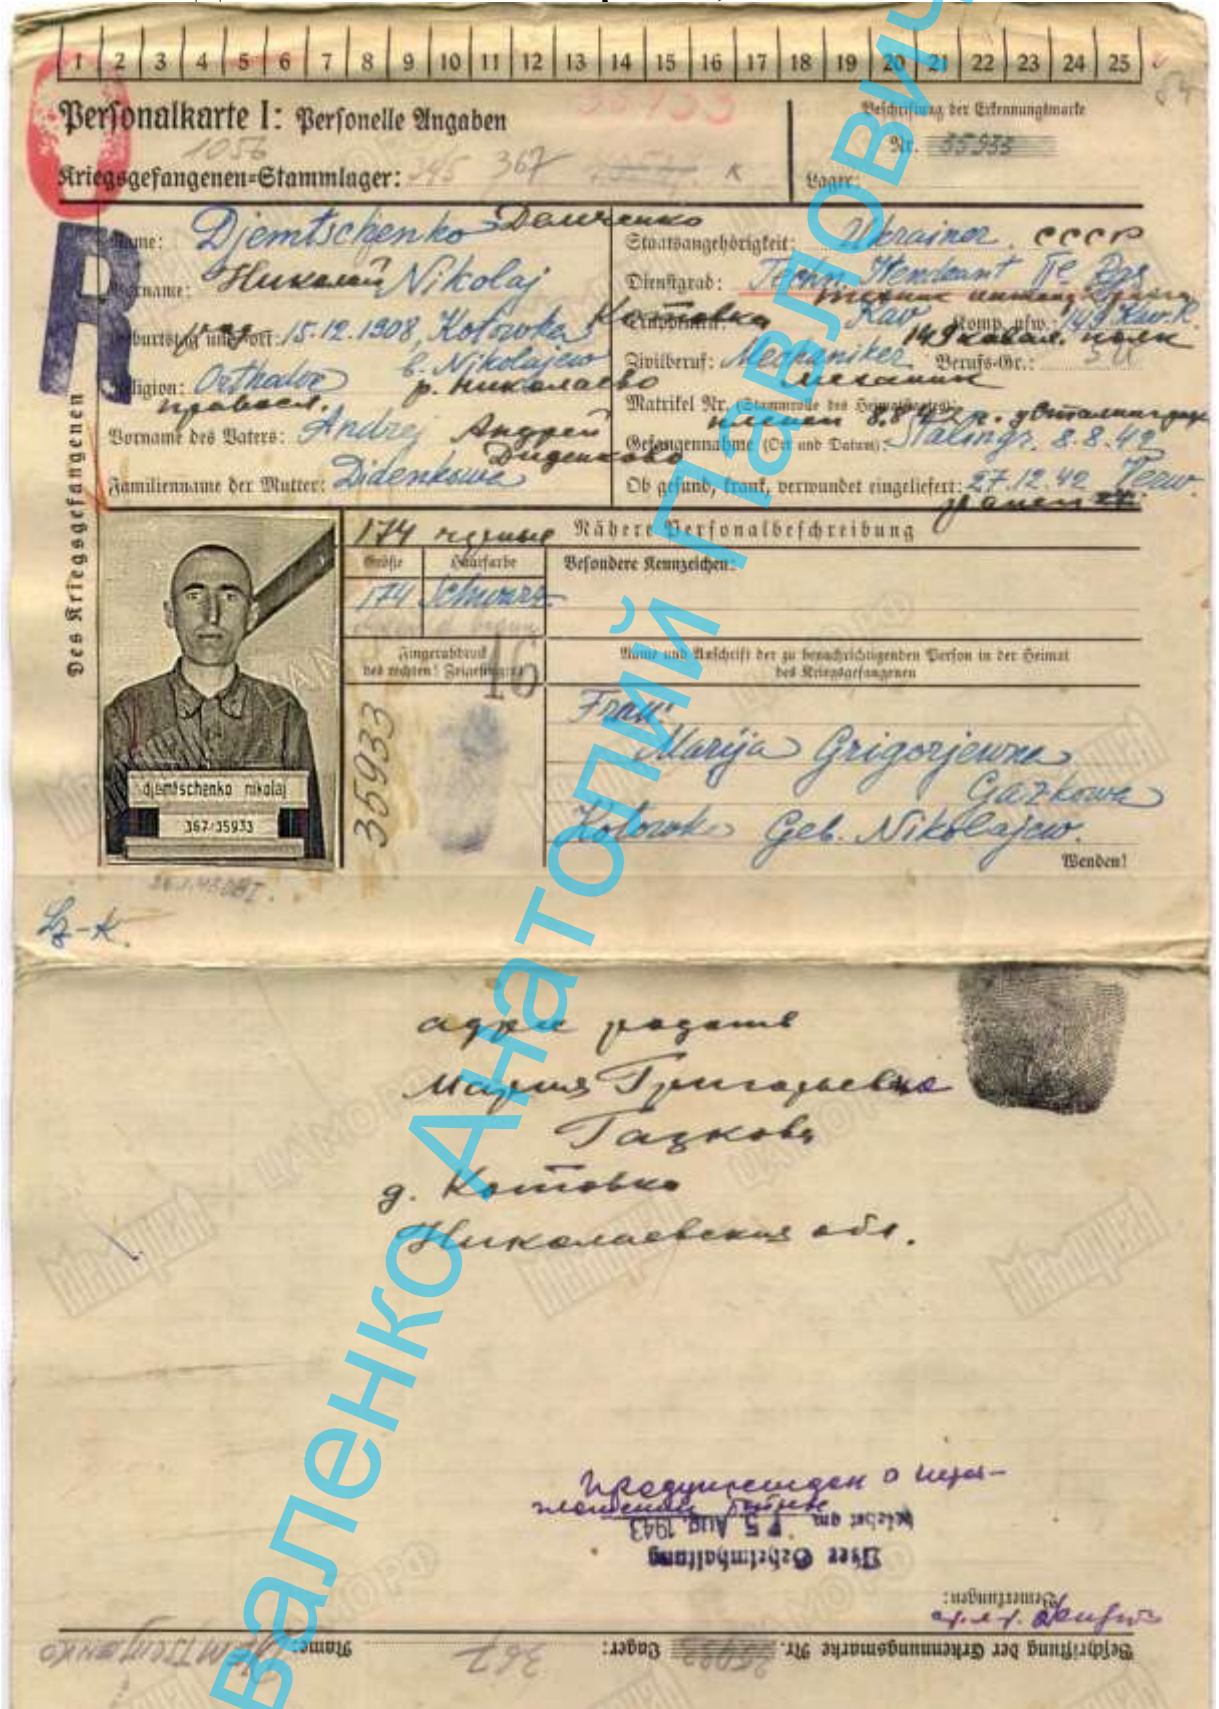 1 2 3 4 5 6 7 8 9 10 11 12 13 14 15 16 17 18 19 20 21 22 23 24 25
Personalkarte I: Personelle Angaben
35933
Beschriftung der Erkennungsmarke
Nr. 35933
Lager:
1056
Kriegsgefangenen=Stammlager: 345 367 K
R
Des Kriegsgefangenen
Name: Djemtschenko Демченко
Vorname: Николай Nikolaj
Geburtstag und -ort: 15.12.1908, Kotowka Котовка
b. Nikolajew
Religion: Orthodox р. Николаево
правосл.
Vorname des Vaters: Andrej Андрей
Диденково
Familienname der Mutter: Didenkowa
Staatsangehörigkeit: Ukrainer СССР
Dienstgrad: Techn. Itendant IIe Rgs
техник интенд. 2 ранга
Truppenteil: Kav Komp. usw.: 149 Kav. R.
149 кавал. полк
Zivilberuf: Mechaniker Berufs-Gr.:
механик
Matrikel Nr. (Stammrolle des Heimatstaates):
пленен 8.8.42 г. у Сталинграда
Gefangennahme (Ort und Datum): Stalingr. 8.8.42
Ob gesund, krank, verwundet eingeliefert: 27.12.42 Verw.
ранен
174 черные
Nähere Personalbeschreibung
Größe Haarfarbe
Besondere Kennzeichen:
174 schwarz
Fingerabdruck
des rechten! Zeigefingers
16
Name und Anschrift der zu benachrichtigenden Person in der Heimat
des Kriegsgefangenen
35933
Frau:
Marija Grigorjewna
Gazkowa
Kotowka Geb. Nikolajew.
Wenden!
djemtschenko nikolaj
367/35933
адрес родств
Мария Григорьевна
Гацкова
д. Котовка
Николаевская обл.
Предупрежден о нераз-
глашении тайны
belehrt am 5. Aug. 1943
Über Geheimhaltung
Bemerkungen:
Beschriftung der Erkennungsmarke Nr. 35933 Lager: 367 Name:
валенко Анатолий Павлович